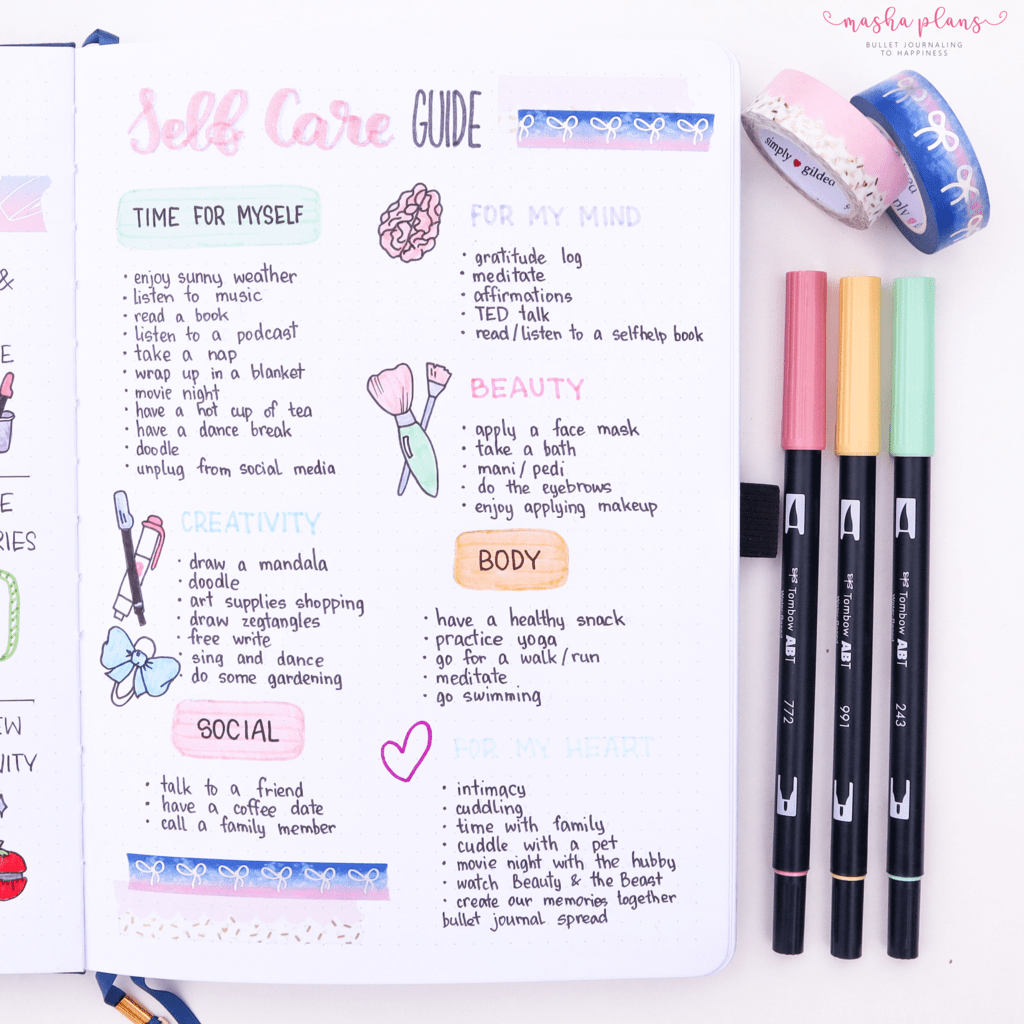 masha plans
BULLET JOURNALING
TO HAPPINESS
Self Care GUIDE
TIME FOR MYSELF
• enjoy sunny weather
• listen to music
• read a book
• listen to a podcast
• take a nap
• wrap up in a blanket
• movie night
• have a hot cup of tea
• have a dance break
• doodle
• unplug from social media
CREATIVITY
• draw a mandala
• doodle
• art supplies shopping
• draw zegtangles
• free write
• sing and dance
• do some gardening
SOCIAL
• talk to a friend
• have a coffee date
• call a family member
FOR MY MIND
• gratitude log
• meditate
• affirmations
• TED talk
• read/listen to a selfhelp book
BEAUTY
• apply a face mask
• take a bath
• mani/pedi
• do the eyebrows
• enjoy applying makeup
BODY
• have a healthy snack
• practice yoga
• go for a walk/run
• meditate
• go swimming
FOR MY HEART
• intimacy
• cuddling
• time with family
• cuddle with a pet
• movie night with the hubby
• watch Beauty & the Beast
• create our memories together
bullet journal spread
&
E
E
RIES
EW
VITY
simply gilded
Tombow ABT
772
Tombow ABT
991
Tombow ABT
243